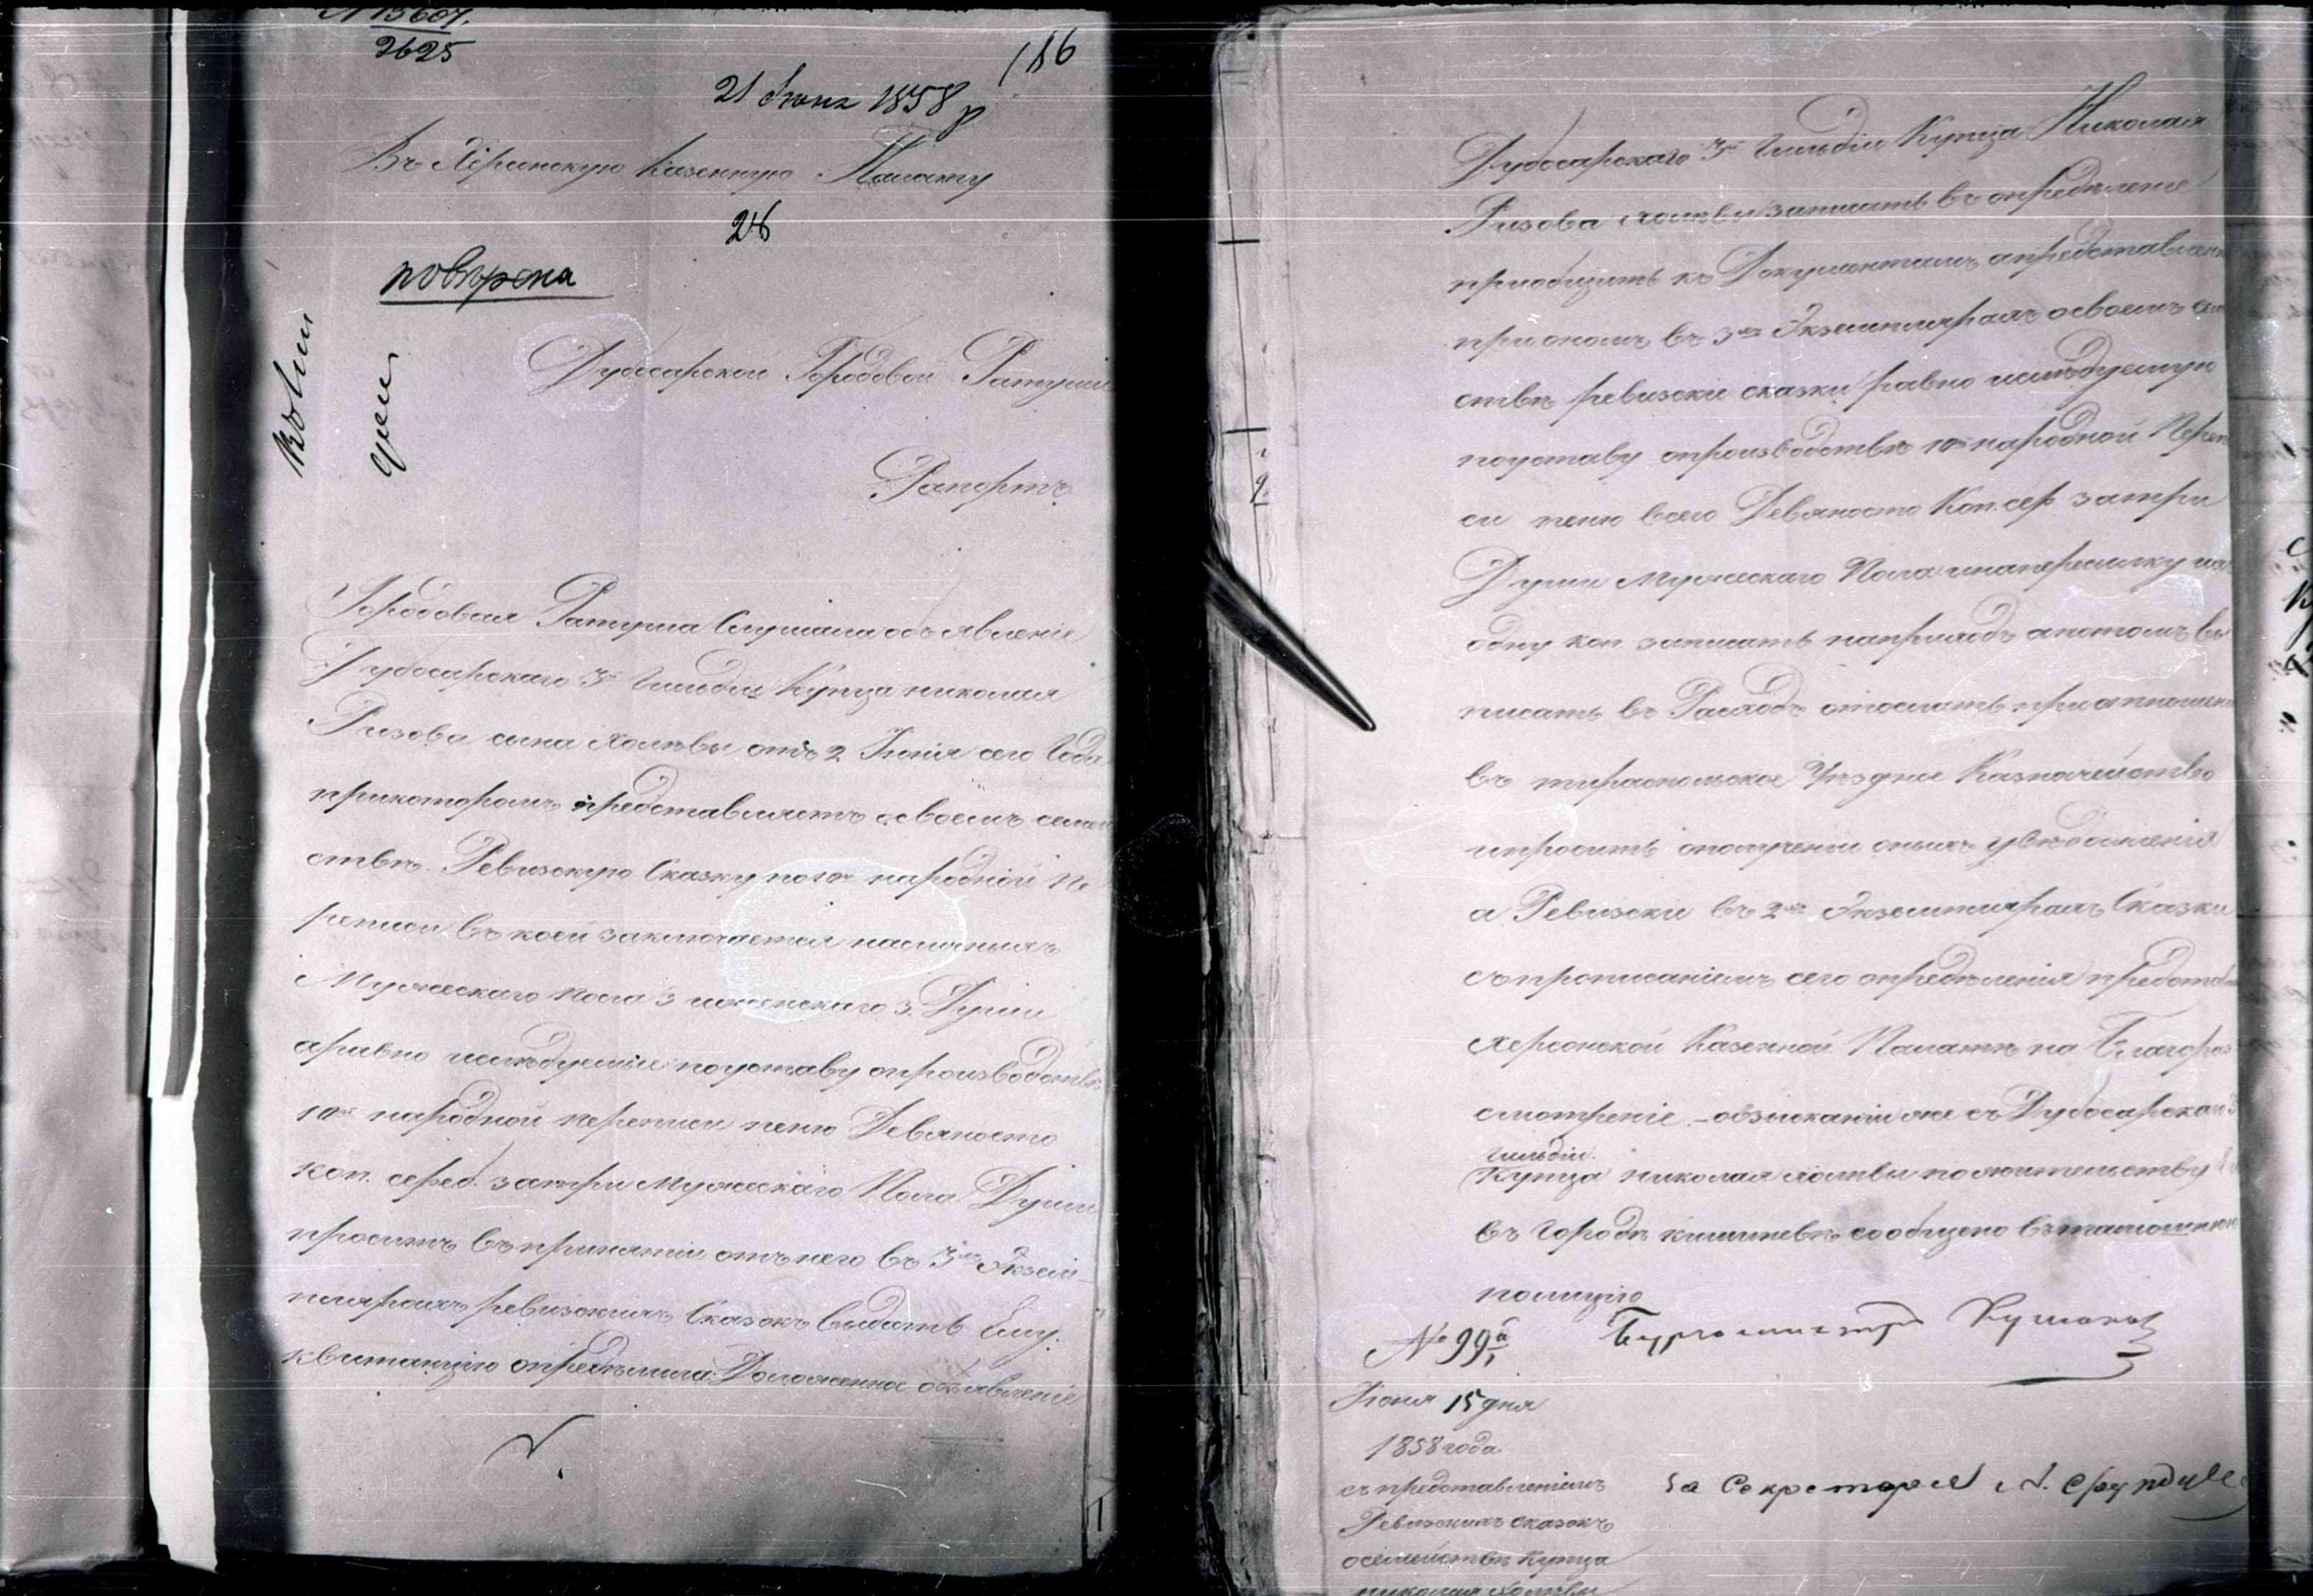 N 15607.
2625
186
21 Июня 1858
Въ Херсонскую Казенную Палату
26
повѣрена
Дубосарской Городовой Ратуши
Рапортъ.
Городовая Ратуша Слушала объявленіе
Дубосарскаго 3й Гильдіи Купца николая
Ризова сына Холевы отъ 2 Іюнія сего Года
прикоторомъ представляетъ освоемъ семей
ствѣ Ревизскую Сказку по10й народной Пе
реписи въ коей заключается наличныхъ
Мужескаго пола 3 иженскаго 3. Души
аравно ислѣдуемые поуставу опроизводствѣ
10й народной переписи пеню Девяносто
коп. сереб. затри Мужескаго Пола Души
проситъ въпринятіи отънего въ 3хъ Экзем-
плярахъ ревизскихъ Сказокъ выдать Ему.
квитанцію опредѣлила: Доложенное объявленіе
Дубосарскаго 3й Гильдіи Купца Николая
Ризова Холевы записать въ опредѣленіе
пріобщить къ Документамъ апредставлен
при ономъ въ 3хъ Экземплярахъ освоемъ сем
ствѣ ревизскіе сказки равно ислѣдуемую
поуставу опроизводствѣ 10й народной Переп
си пеню всего Девяносто Коп. сер затри
Души Мужескаго Пола инапересылку
одну коп. записать наприходъ апотомъ вы
писать въ Расходъ отослать при отношени
въ тираспольское Уѣздное Казначейство
ипросить ополученіи оныхъ увѣдомленія
а Ревизскіе въ 2хъ Экземплярахъ Сказки
съпрописаніемъ сего опредѣленія представ
Херсонской Казенной Палатѣ на Благораз
смотреніе - овзысканіи же съ Дубосарскаго 3
гильдіи.
Купца николая Холевы пожительству
въ Городѣ кишиневѣ сообщено вътамошнюю
полицію
Бургомистръ
№ 99
Іюня 15 дня
1858 года.
съпредставленіемъ
Ревизскихъ сказокъ
осемействѣ Купца
николая Холевы
За Секретаря